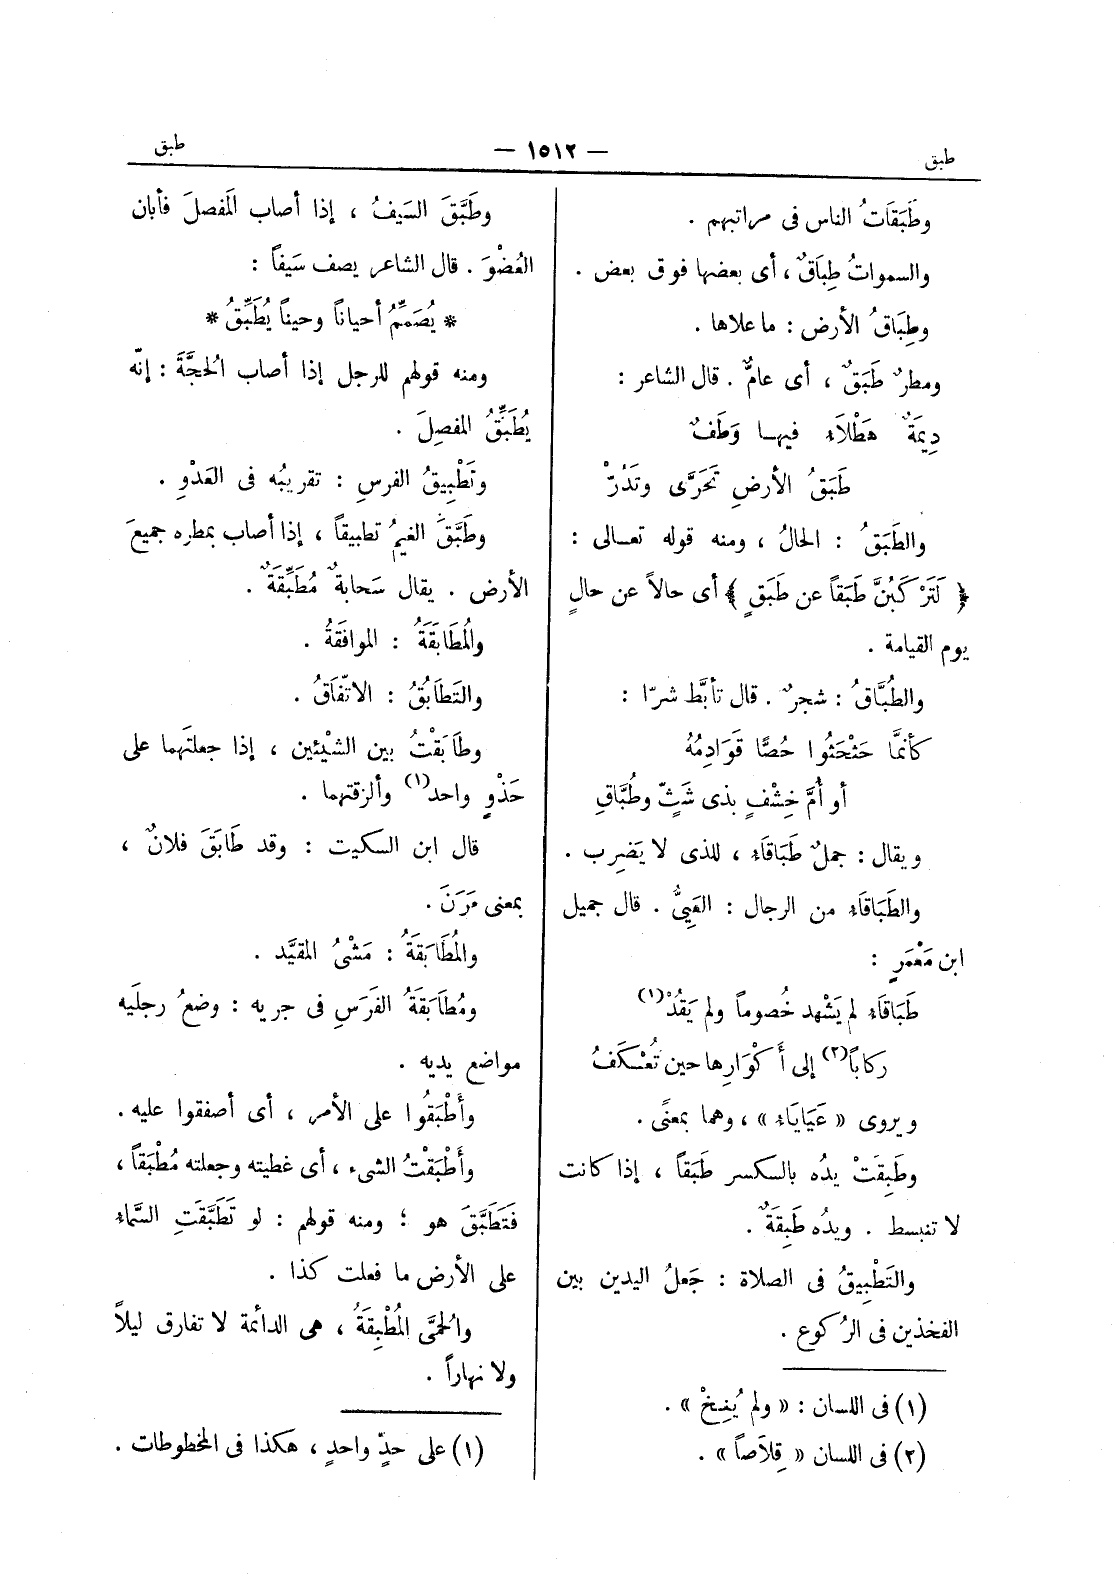 طبق — ١٥١٢ — طبق
وطَبَقَاتُ الناس فى مراتبهم .
والسمواتُ طِبَاقٌ ، أى بعضها فوق بعض .
وطِبَاقُ الأرض : ما علاها .
ومطرٌ طَبَقٌ ، أى عامٌّ . قال الشاعر :
دِيمَةٌ هَطْلَاءِ فيهـا وَطَفٌ
طَبَقُ الأرضِ تَحَرَّى وتَدُرّْ
والطَبَقُ : الحالُ ، ومنه قوله تعـالى :
﴿ لَتَرْكَبُنَّ طَبَقاً عن طَبَقٍ ﴾ أى حالاً عن حالٍ
يوم القيامة .
والطُبَّاقُ : شجرٌ . قال تأبَّط شرًّا :
كأنمَّا حَثْحَثُوا حُصًّا قَوَادِمُهُ
أو أُمَّ خِشْفٍ بذى شَثٍّ وطُبَّاقِ
ويقال : جملٌ طَبَاقَاءِ ، للذى لا يَضرِب .
والطَبَاقَاءِ من الرجال : العَيِىُّ . قال جميل
ابن مَعْمَرٍ :
طَبَاقَاءِ لم يَشْهد خُصوماً ولم يَقُدْ(١)
ركاباً(٢) إلى أَكْوَارِها حين تُعْكَفُ
ويروى « عَيَايَاءِ » ، وهما بمعنًى .
وطَبِقَتْ يدُه بالكسر طَبَقاً ، إذا كانت
لا تنبسط . ويدُه طَبِقَةٌ .
والتَطْبِيقُ فى الصلاة : جَعلُ اليدين بين
الفخذين فى الرُكوع .
(١) فى اللسان : « ولم يُنِخْ » .
(٢) فى اللسان « قِلَاصاً » .
وطَبَّقَ السَيفُ ، إذا أصاب المَفصلَ فأبان
العُضْوَ . قال الشاعر يصف سَيفاً :
* يُصَمِّمُ أحياناً وحيناً يُطَبِّقُ *
ومنه قولهم للرجل إذا أصاب الحجَّةَ : إنّه
يُطَبِّقُ المفصِلَ .
وتَطْبِيقُ الفرسِ : تقريبُه فى العَدْوِ .
وطَبَّقَ الغيمُ تطبيقاً ، إذا أصاب بمطره جميعَ
الأرض . يقال سَحابةٌ مُطَبِّقَةٌ .
والمُطَابَقَةُ : الموافَقةُ .
والتَطَابُقُ : الاتّفَاقُ .
وطَابَقْتُ بين الشيْئين ، إذا جعلتَهما على
حَذْوٍ واحد(١) وألزقتهما .
قال ابن السكيت : وقد طَابَقَ فلانٌ ،
بمعنى مَرَنَ .
والمُطَابَقَةُ : مَشْىُ المقيَّد .
ومُطَابَقَةُ الفَرَسِ فى جريه : وضعُ رجلَيه
مواضع يديه .
وأَطْبَقُوا على الأمر ، أى أصفقوا عليه .
وأَطْبَقْتُ الشىء ، أى غطيته وجعلته مُطْبَقاً ،
فَتَطَبَّقَ هو ؛ ومنه قولهم : لو تَطَبَّقَتِ السَّماءِ
على الأرض ما فعلت كذا .
والحمَّى المُطْبِقَةُ ، هى الدائمة لا تفارق ليلاً
ولا نهاراً .
(١) على حدّ واحدٍ ، هكذا فى المخطوطات .